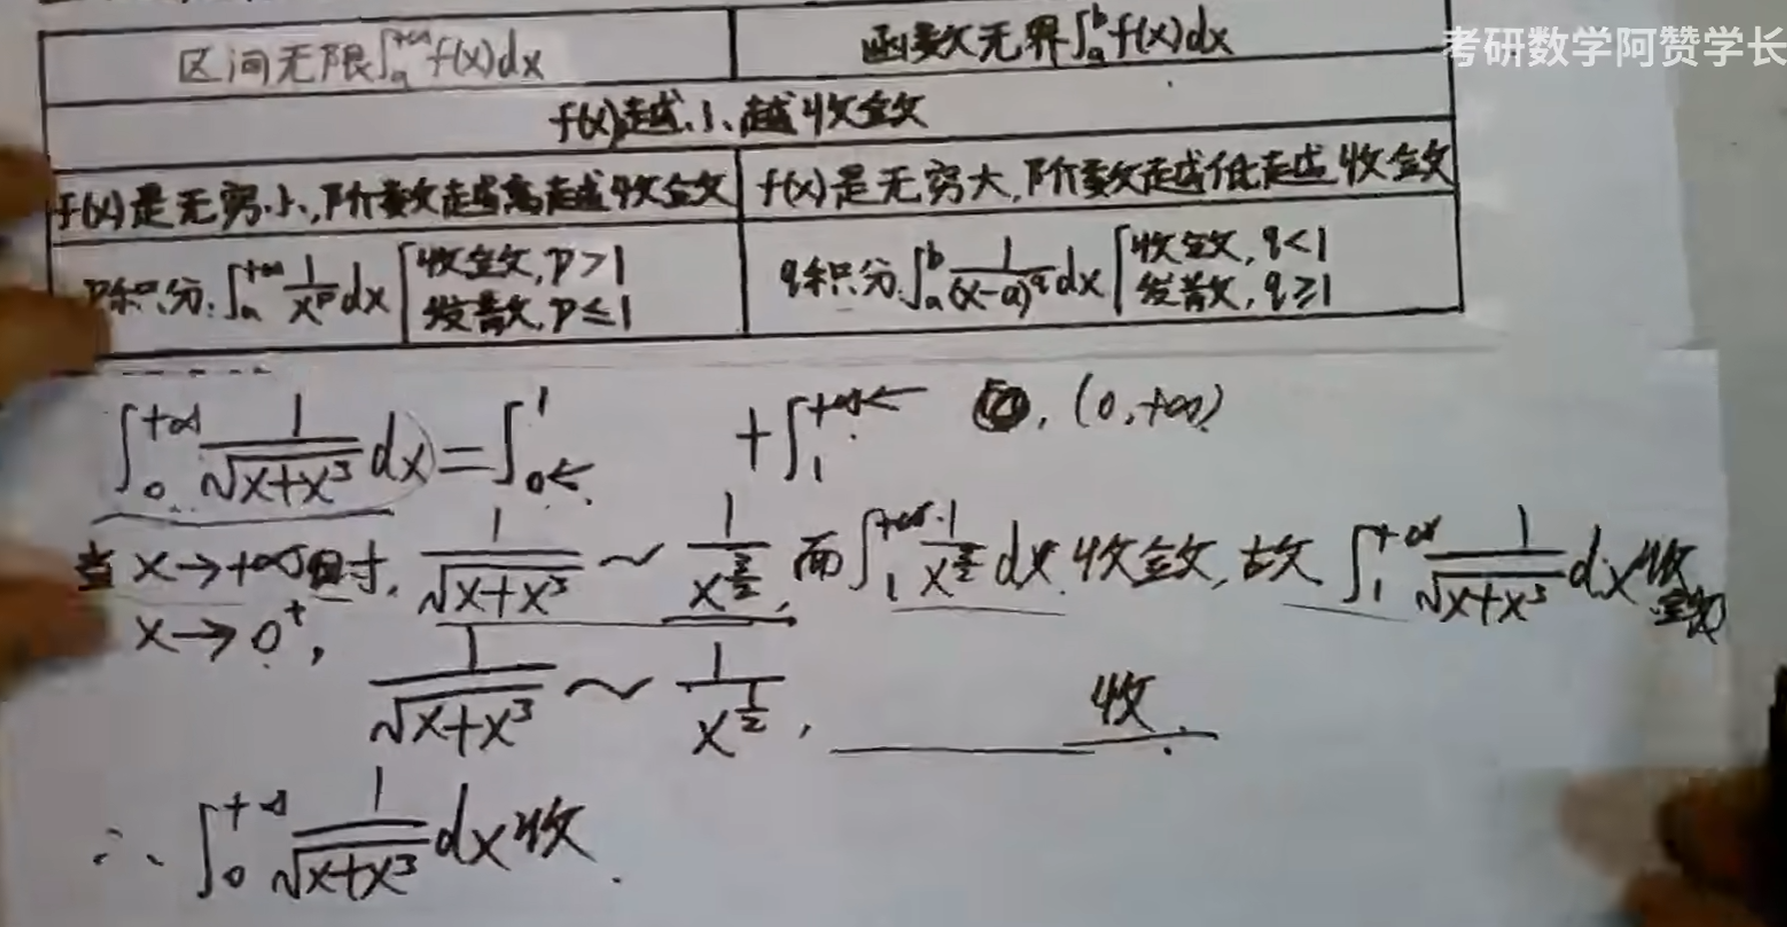 区间无限∫_a^{+∞} f(x)dx 函数无界∫_a^b f(x)dx
考研数学阿赞学长
f(x)越小,越收敛
f(x)是无穷小,阶数越高越收敛 f(x)是无穷大,阶数越低越收敛
p积分:∫_a^{+∞} 1/x^p dx [收敛, p>1 q积分:∫_a^b 1/(x-a)^q dx [收敛, q<1
发散, p≤1 发散, q≥1
∫_0^{+∞} 1/√(x+x³) dx = ∫_{0←}^1 + ∫_1^{+∞←} , (0,+∞)
当 x→+∞时, 1/√(x+x³) ~ 1/x^{3/2}, 而∫_1^{+∞} 1/x^{3/2} dx 收敛, 故 ∫_1^{+∞} 1/√(x+x³) dx 收敛
x→0⁺, 1/√(x+x³) ~ 1/x^{1/2}, 收.
∴ ∫_0^{+∞} 1/√(x+x³) dx 收.